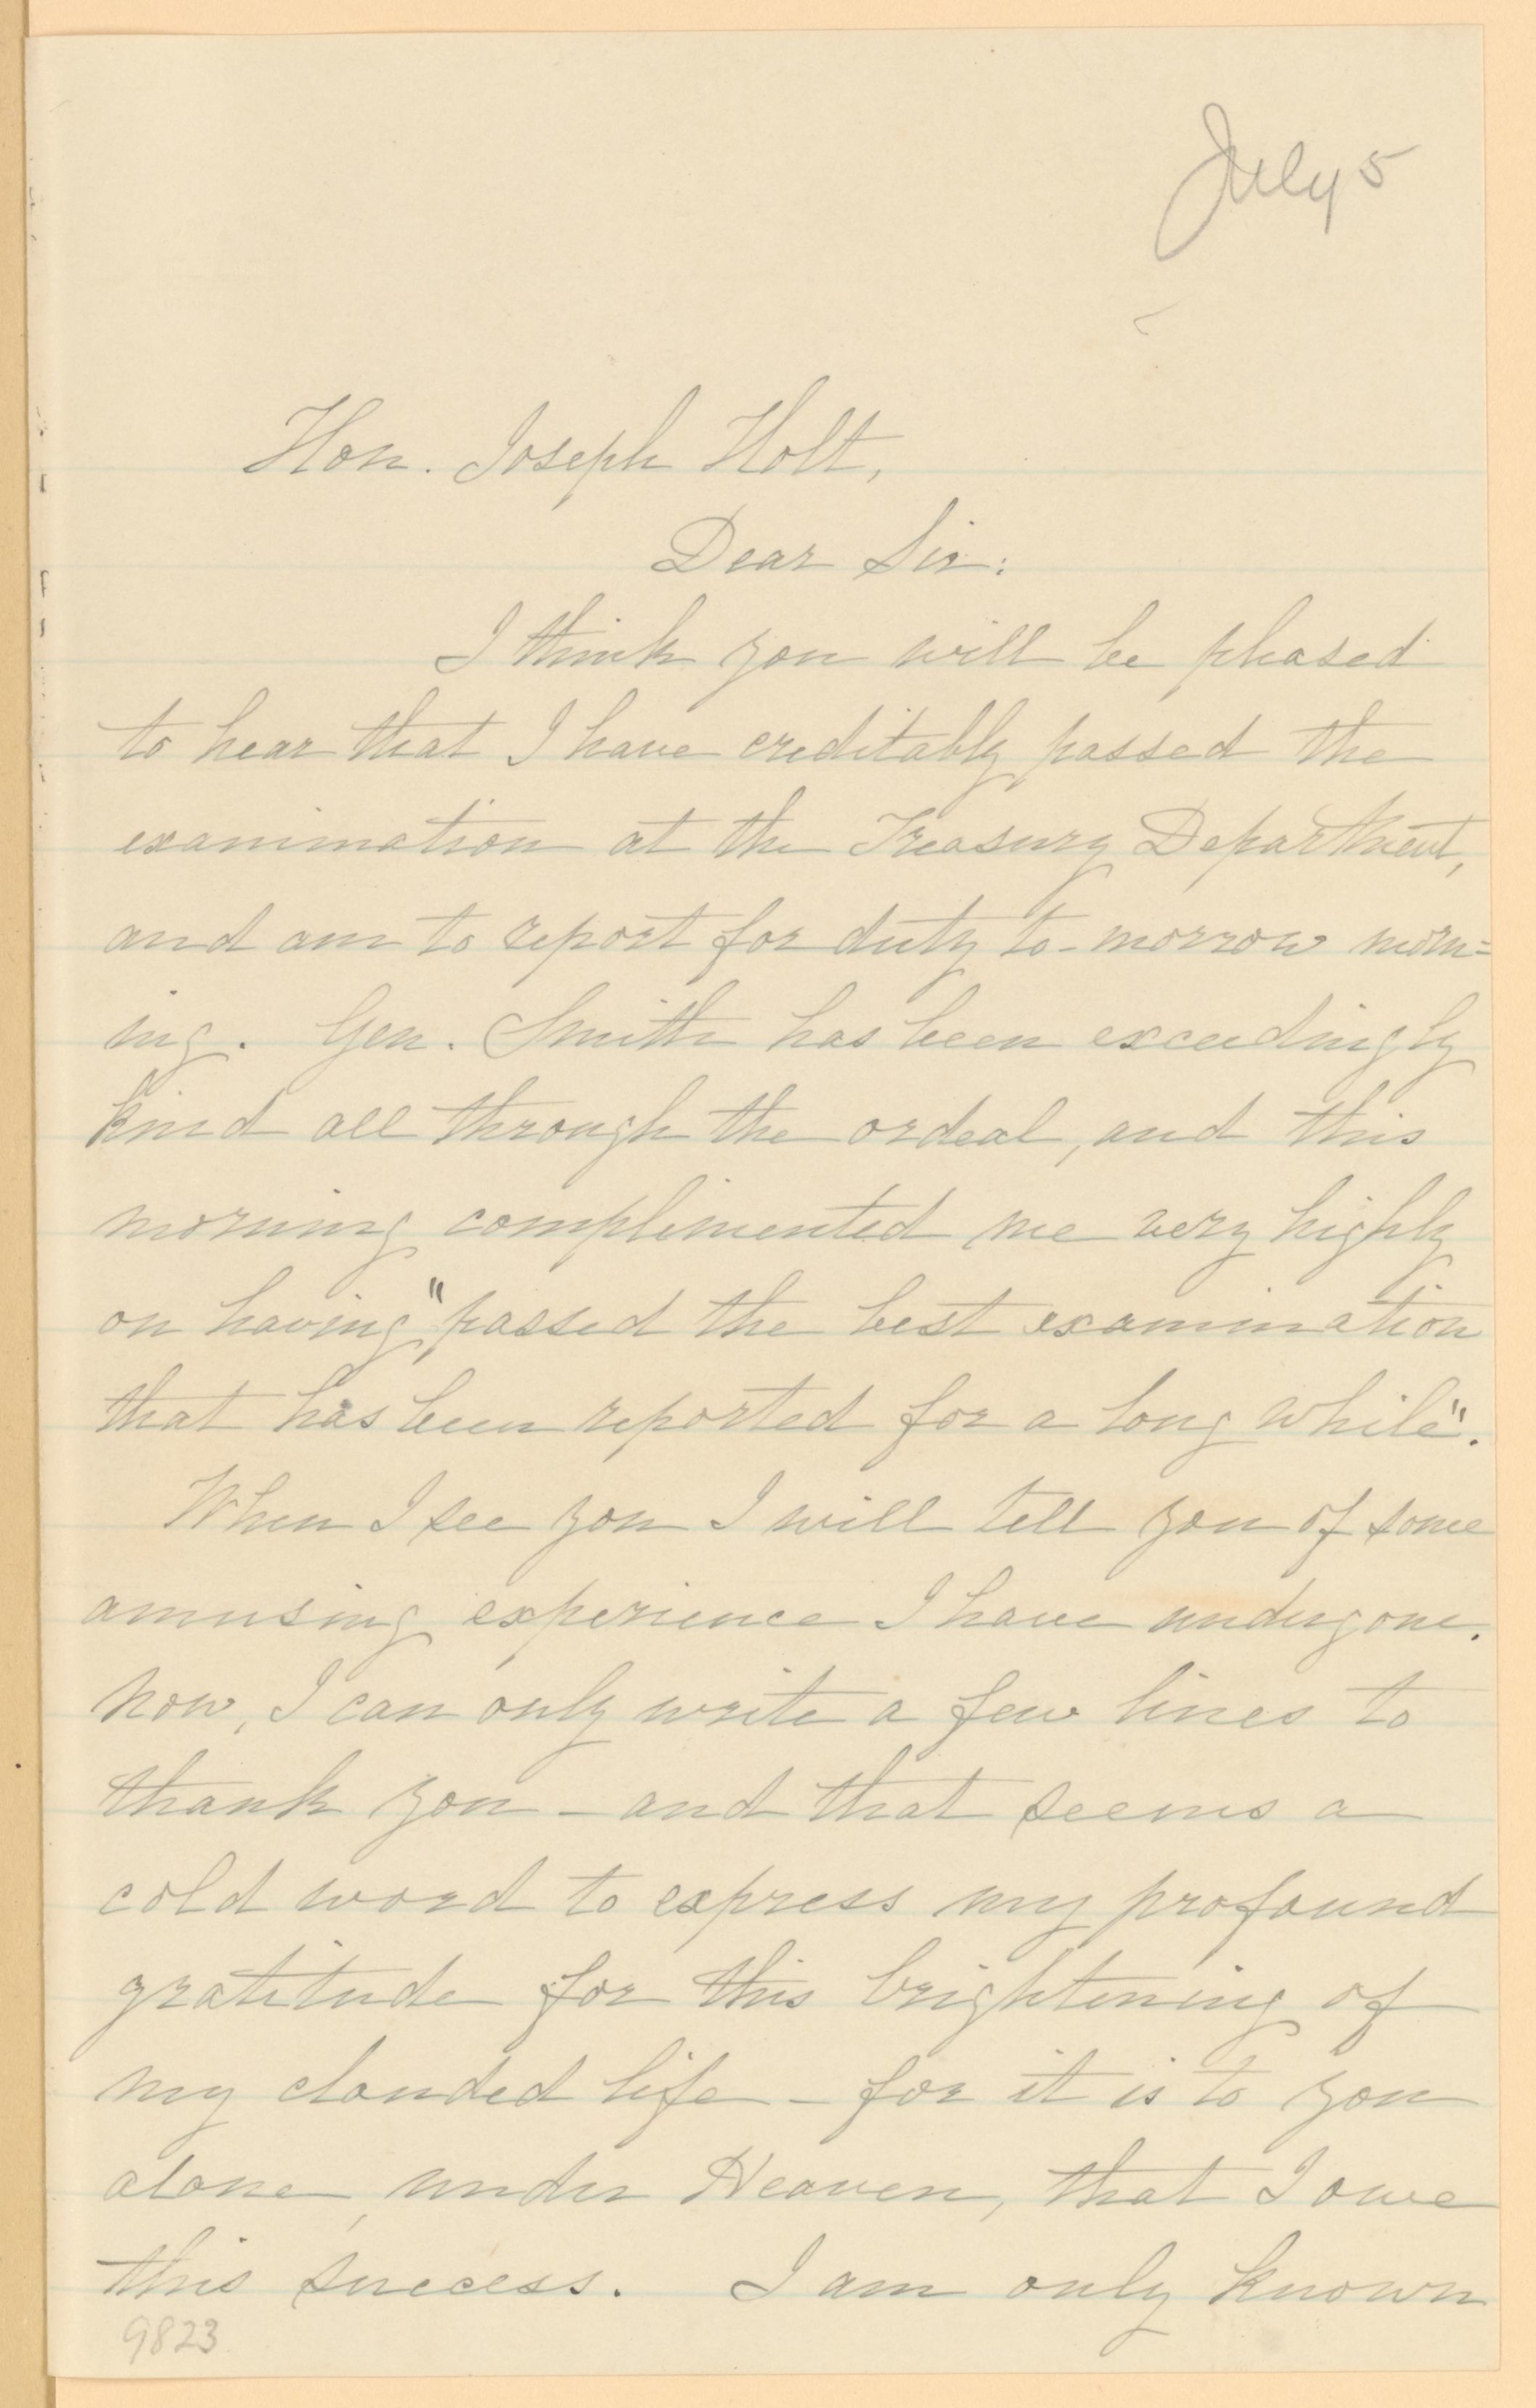 July 5
Hon. Joseph Holt,
Dear Sir:
I think you will be pleased
to hear that I have creditably passed the
examination at the Treasury Department,
and am to report for duty to-morrow morn=
ing. Gen. Smith has been exceedingly
kind all through the ordeal, and this
morning complimented me very highly
on having "passed the best examination
that has been reported for a long while".
When I see you I will tell you of some
amusing experience I have undergone.
Now, I can only write a few lines to
thank you - and that seems a
cold word to express my profound
gratitude for this brightening of
my clouded life - for it is to you
alone, under Heaven, that I owe
this success. I am only known
9823